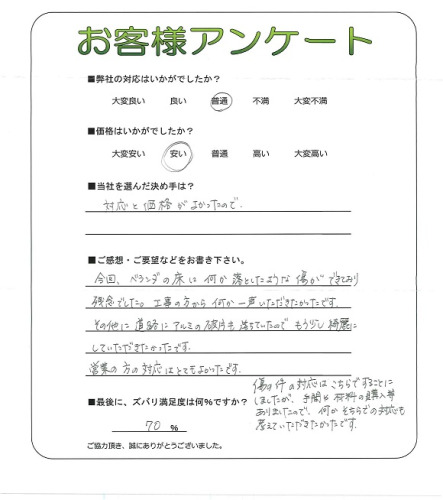 お客様アンケート
■弊社の対応はいかがでしたか？
大変良い 良い 普通 不満 大変不満
■価格はいかがでしたか？
大変安い 安い 普通 高い 大変高い
■当社を選んだ決め手は？
対応と価格がよかったので。
■ご感想・ご要望などをお書き下さい。
今回、ベランダの床に何か落としたような傷ができており
残念でした。工事の方から何か一声いただきたかったです。
その他に道路にアルミの破片も落ちていたのでもう少し綺麗に
していただきたかったです。
営業の方の対応はとてもよかったです。
傷の件の対応はこちらですることに
しましたが、手間や材料の購入等
ありましたので、何かそちらでの対応も
考えていただきたかったです。
■最後に、ズバリ満足度は何％ですか？
70 %
ご協力頂き、誠にありがとうございました。